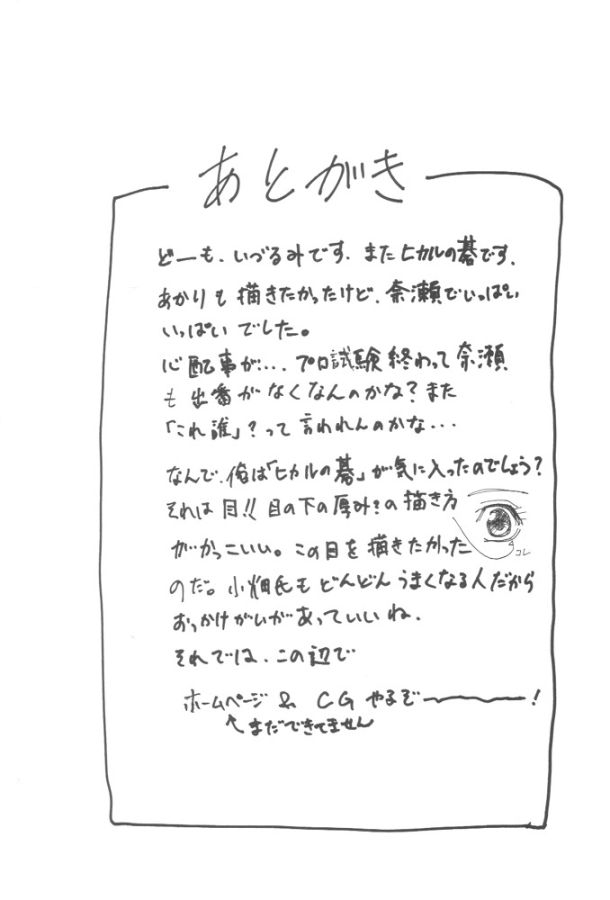 あとがき
どーも、いづるみです。またヒカルの碁です。
あかりも描きたかったけど、奈瀬でいっぱい
いっぱいでした。
心配事が…。プロ試験終わって奈瀬
も出番がなくなんのかな?また
「これ誰」?って言われんのかな…
なんで、俺は「ヒカルの碁」が気に入ったのでしょう?
それは目!!目の下の厚み?の描き方
がかっこいい。この目を描きたかった
コレ
のだ。小畑氏もどんどんうまくなる人だから
おっかけがいがあっていいね。
それでは、この辺で
ホームページ & CG やるぞ――!
まだできてません